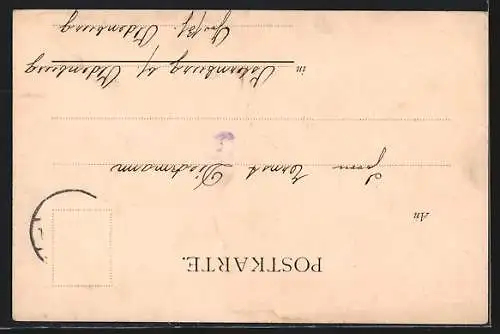 POSTKARTE.
An
Herrn Ernst Diekmann
in Osternburg b/ Oldenburg
Großh. Oldenburg